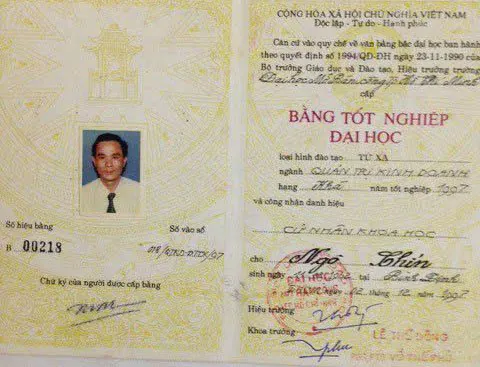 Số hiệu bằng
B 00218
Số vào sổ
Chữ ký của người được cấp bằng
CỘNG HÒA XÃ HỘI CHỦ NGHĨA VIỆT NAM
Độc lập - Tự do - Hạnh phúc
Căn cứ vào quy chế về văn bằng bậc đại học ban hành
theo quyết định số 1994/QD-ĐH ngày 23-11-1990 của
Bộ trưởng Giáo dục và Đào tạo, Hiệu trưởng trường
Đại học Mở Bán công
cấp
BẰNG TỐT NGHIỆP
ĐẠI HỌC
loại hình đào tạo TỪ XA
ngành QUẢN TRỊ KINH DOANH
hạng Khá năm tốt nghiệp 1997
và công nhận danh hiệu
CỬ NHÂN KHOA HỌC
cho Ngô Chín
sinh ngày tại Bình Định
ngày 02 - 12 - 1997
Hiệu trưởng
Khoa trưởng